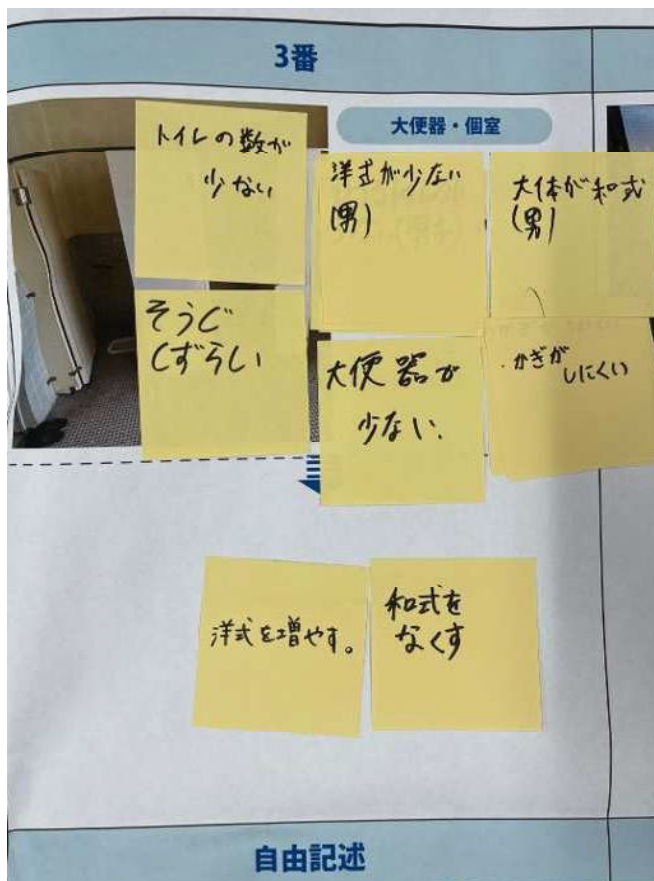 3番
大便器・個室
トイレの数が
少ない
洋式が少ない
(男)
大体が和式
(男)
そうじ
しずらい
大便器が
少ない.
・かぎが
しにくい
洋式を増やす。
和式を
なくす
自由記述